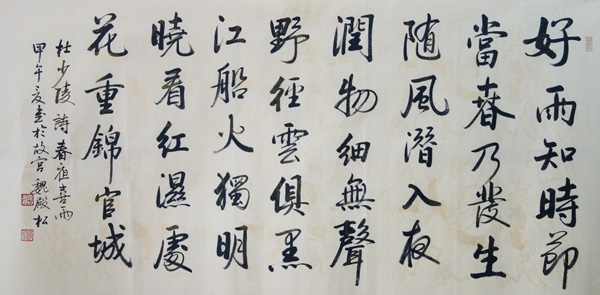 好雨知時節
當春乃發生
随風潛入夜
潤物細無聲
野徑雲俱黑
江船火獨明
曉看紅濕處
花重錦官城
杜少陵詩春夜喜雨
甲午夏書於故宫魏殿松